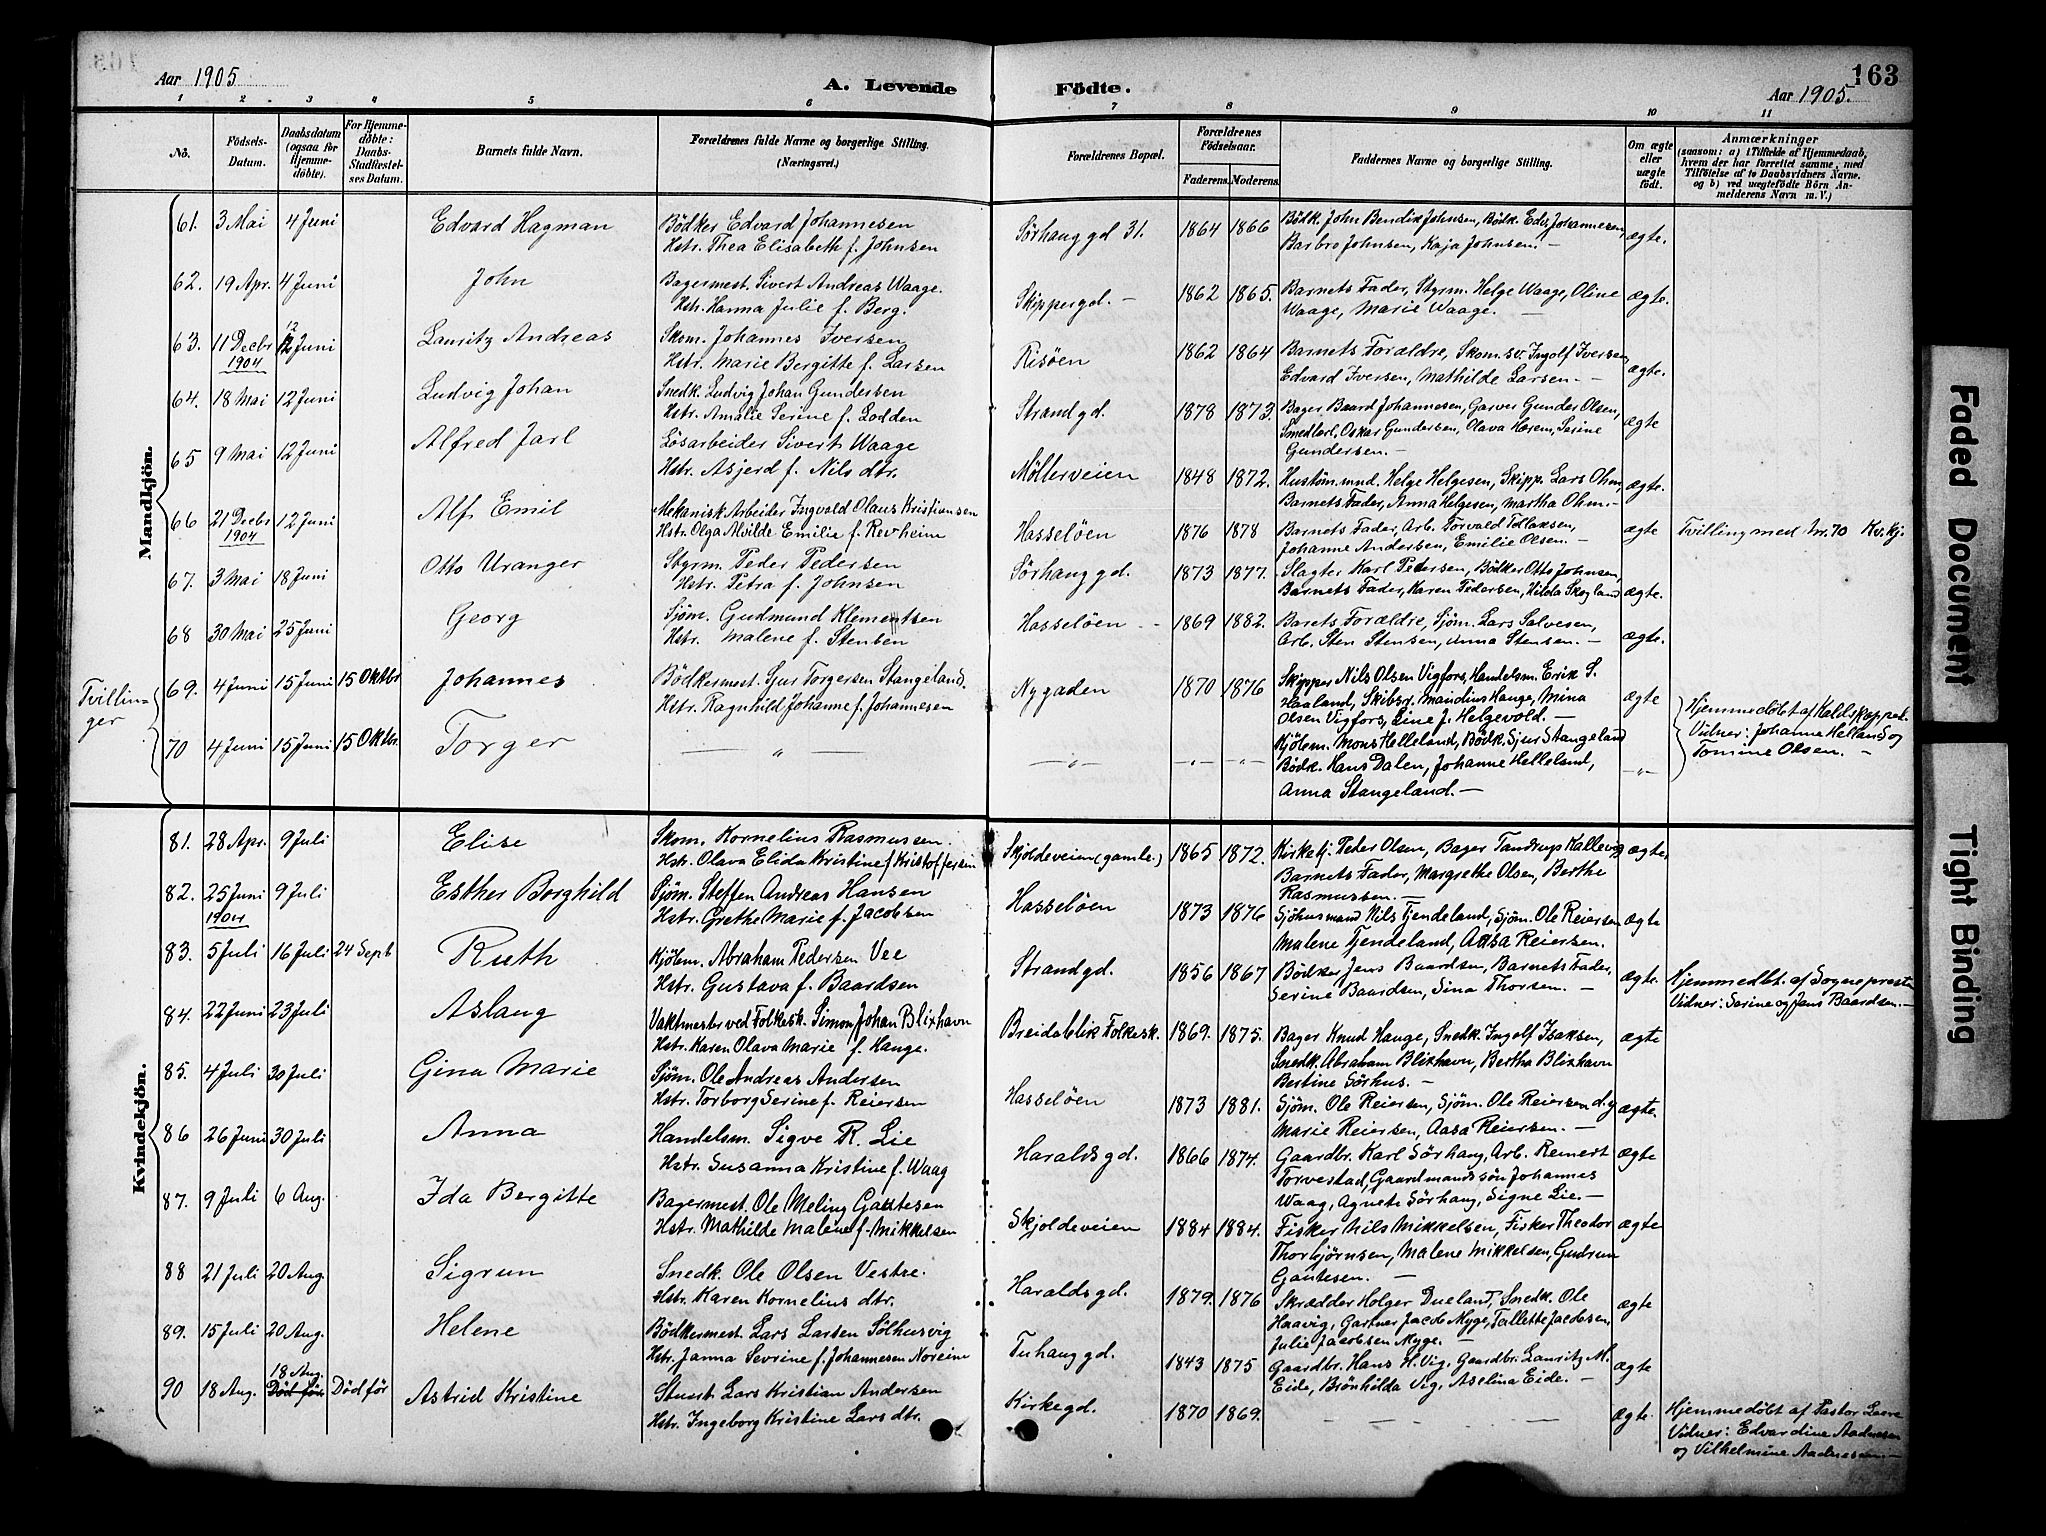 Aar 1905
A. Levende
Födte.
163
Aar 1905.
1 2. 3 4 5 6 7 8 9 10 11
No.
Födsels-Datum.
Daabsdatum (ogsaa for Hjemmedöbte).
For Hjemmedöbte: Daabs-Stadfæstelses Datum.
Barnets fulde Navn.
Forældrenes fulde Navne og borgerlige Stilling. (Næringsvei.)
Forældrenes Bopæl.
Forældrenes Födselsaar.
Faderens. Moderens.
Faddernes Navne og borgerlige Stilling.
Om ægte eller uægte födt.
Anmærkninger
(saasom: a) i Tilfælde af Hjemmedaab, hvem der har forrettet samme, med Tilföielse af to Daabsvidners Navne. og b) ved uægtefödte Börn Anmelderens Navn m. V.)
Mandkjön.
61. 3 Mai 4 Juni Edvard Hagman Bödker Edvard Johannesen
Hstr. Thea Elisabeth f. Johnsen
Sørhauggd 31. 1864 1866 Bödk. John Bendik Johnsen, Bödk. Edv. Johannesen,
Barbro Johnsen, Kaja Johnsen. — ægte.
62. 19 Apr. 4 Juni John Bagermest. Sivert Andreas Waage.
Hstr. Hanna Julie f. Berg.
Skippergd. — 1862 1865. Barnets Fader, Styrm. Helge Waage, Oline
Waage, Marie Waage. — ægte.
63. 11 Decbr 1904 12 Juni Lauritz Andreas Skom. Johannes Iversen
Hstr. Marie Bergitte f. Larsen
Risöen 1862 1864 Barnets Forældre, Skom.sv. Ingolf Iversen,
Edvard Iversen, Mathilde Larsen. — ægte.
64. 18 Mai 12 Juni Ludvig Johan Snedk. Ludvig Johan Gundersen
Hstr. Amalie Serine f. Lodden
Strandgd. 1878 1873. Bager Baard Johannesen, Garver Gunder Olsen,
Smedlærl. Oskar Gundersen, Olava Hæsem, Serine
Gundersen. — ægte
65 9 Mai 12 Juni Alfred Jarl Løsarbeider Sivert Waage
Hstr. Asjerd f. Nils dtr.
Møllerveien 1848 1872. Hustøm.mnd. Helge Helgesen, Skipp. Lars Ohm,
Barnets Fader, Anna Helgesen, Martha Ohm. — ægte.
66 21 Decbr 1904 12 Juni Alf Emil Mekanisk Arbeider Ingvald Olaus Kristiansen
Hstr. Olga Alvilde Emilie f. Revheim
Hasseløen 1876 1878 Barnets Fader, Arb. Torvald Tollaksen,
Johanne Andersen, Emilie Olsen. — ægte Tvilling med Nr. 70 Kv.kj.
67. 3 Mai 18 Juni Otto Uranger Styrm. Peder Pedersen
Hstr. Petra f. Johnsen
Sørhauggd. 1873 1877. Slagter Karl Pedersen, Bödker Otto Johnsen,
Barnets Fader, Karen Pedersen, Hilda Skogland ægte.
68 30 Mai 25 Juni Georg Sjöm. Gudmund Klementsen
Hstr. Malene f. Stensen
Hasseløen — 1869 1882. Barets Forældre, Sjöm. Lars Salvesen,
Arb. Sten Stensen, Anna Stensen. — ægte.
Tvillinger
69. 4 Juni 15 Juni 15 Oktbr Johannes Bödkermest. Sjur Torgersen Stangeland.
Hstr. Ragnhild Johanne f. Johannesen
Nygaden 1870 1876 Skipper Nils Olsen Vigfors, Handelsm. Erik S.
Haaland, Skibsr. Maudius Hauge, Mina
Olsen Vigfors, Line J. Helgevold. — ægte
Hjemmedøbt af Kaldskappræl.
Vidner: Johanne Helland og
Tomine Olsen. —
70 4 Juni 15 Juni 15 Oktbr. Torger — " —
— " — — " — — " — Kjölem. Mons Helleland, Bödk. Sjur Stangeland
Bödk. Hans Dalen, Johanne Helleland,
Anna Stangeland. — — " —
Kvindekjön.
81. 28 Apr. 9 Juli Elise Skom. Kornelius Rasmussen.
Hstr. Olava Elida Kristine f. Kristoffersen
Skjoldeveien (gamle) 1865 1872. Kirketj. Peder Olsen, Bager Tandrup Kallevig
Barnets Fader, Margrethe Olsen, Berthe
Rasmussen. — ægte,
82. 25 Juni 1904 9 Juli Esther Borghild Sjöm. Steffen Andreas Hansen
Hstr. Grethe Marie f. Jacobsen
Hasseløen 1873 1876 Sjöhusmand Nils Tjendeland, Sjöm. Ole Reiersen
Malene Tjendeland, Aasa Reiersen. ægte
83. 5 Juli 16 Juli 24 Sept Ruth Kjölem. Abraham Pedersen Vee
Hstr. Gustava f. Baardsen
Strandgd. 1856 1867 Bödker Jens Baardsen, Barnets Fader,
Serine Baardsen, Sina Thorsen. — ægte. Hjemmedbt. af Sognepresten
Vidner: Serine og Jens Baardsen. —
84. 22 Juni 23 Juli Aslaug Vaktmester ved Folkesk. Simon Johan Blixhavn
Hstr. Karen Olava Marie f. Hauge.
Breidablik Folkesk. 1869. 1875. Bager Knud Hauge, Snedk. Ingolf Isaksen,
Snedk. Abraham Blixhavn, Berthe Blixhavn
Bertine Sörhus. — ægte
85. 4 Juli 30 Juli Gina Marie Sjöm. Ole Andreas Andersen
Hstr. Torborg Serine f. Reiersen
Hasseløen 1873 1881. Sjöm. Ole Reiersen, Sjöm. Ole Reiersen d.y.
Marie Reiersen, Aasa Reiersen. — ægte.
86 26 Juni 30 Juli Anna Handelsm. Sigve R. Lie
Hstr. Susanna Kristine f. Waag
Haraldsgd. 1866 1874. Gaardbr. Karl Sørhaug, Arb. Reinert
Torvestad, Gaardmandssøn Johannes
Waag, Agnete Sørhaug, Signe Lie. — ægte
87. 9 Juli 6 Aug. Ida Bergitte Bagermest. Ole Meling Gautesen
Hstr. Mathilde Malene f. Mikkelsen
Skjoldeveien 1884 1884. Fisker Nils Mikkelsen, Fisker Theodor
Thorbjørnsen, Malene Mikkelsen, Gudrun
Gautesen. — ægte
88 21 Juli 20 Aug. Sigrun Snedk. Ole Olsen Vestre.
Hstr. Karen Kornelius dtr.
Haraldsgd. 1879. 1876 Skrædder Holger Dueland, Snedk. Ole
Haavig, Gartner Jacob Myge, Tallette Jacobsen,
Julie Jacobsen Myge. — ægte
89. 15 Juli 20 Aug. Helene Bödkermest. Lars Larsen Sølhusvig
Hstr. Janna Sevrine f. Johannesen Noreim
Tuhauggd. 1843 1875 Gaardbr. Hans H. Vig, Gaardbr. Lauritz M.
Eide, Brönhilda Vig, Aselina Eide. — ægte
90 18 Aug. 18 Aug. Död för Död för Astrid Kristine Stuert Lars Kristian Andersen
Hstr. Ingeborg Kristine Lars dtr.
Kirkegd. 1870 1869. — — — — ægte. Hjemmedøbt af Pastor
Vidner: Edvardine Aadnesen
og Vilhelmine Aadnesen. —
Faded Document
Tight Binding